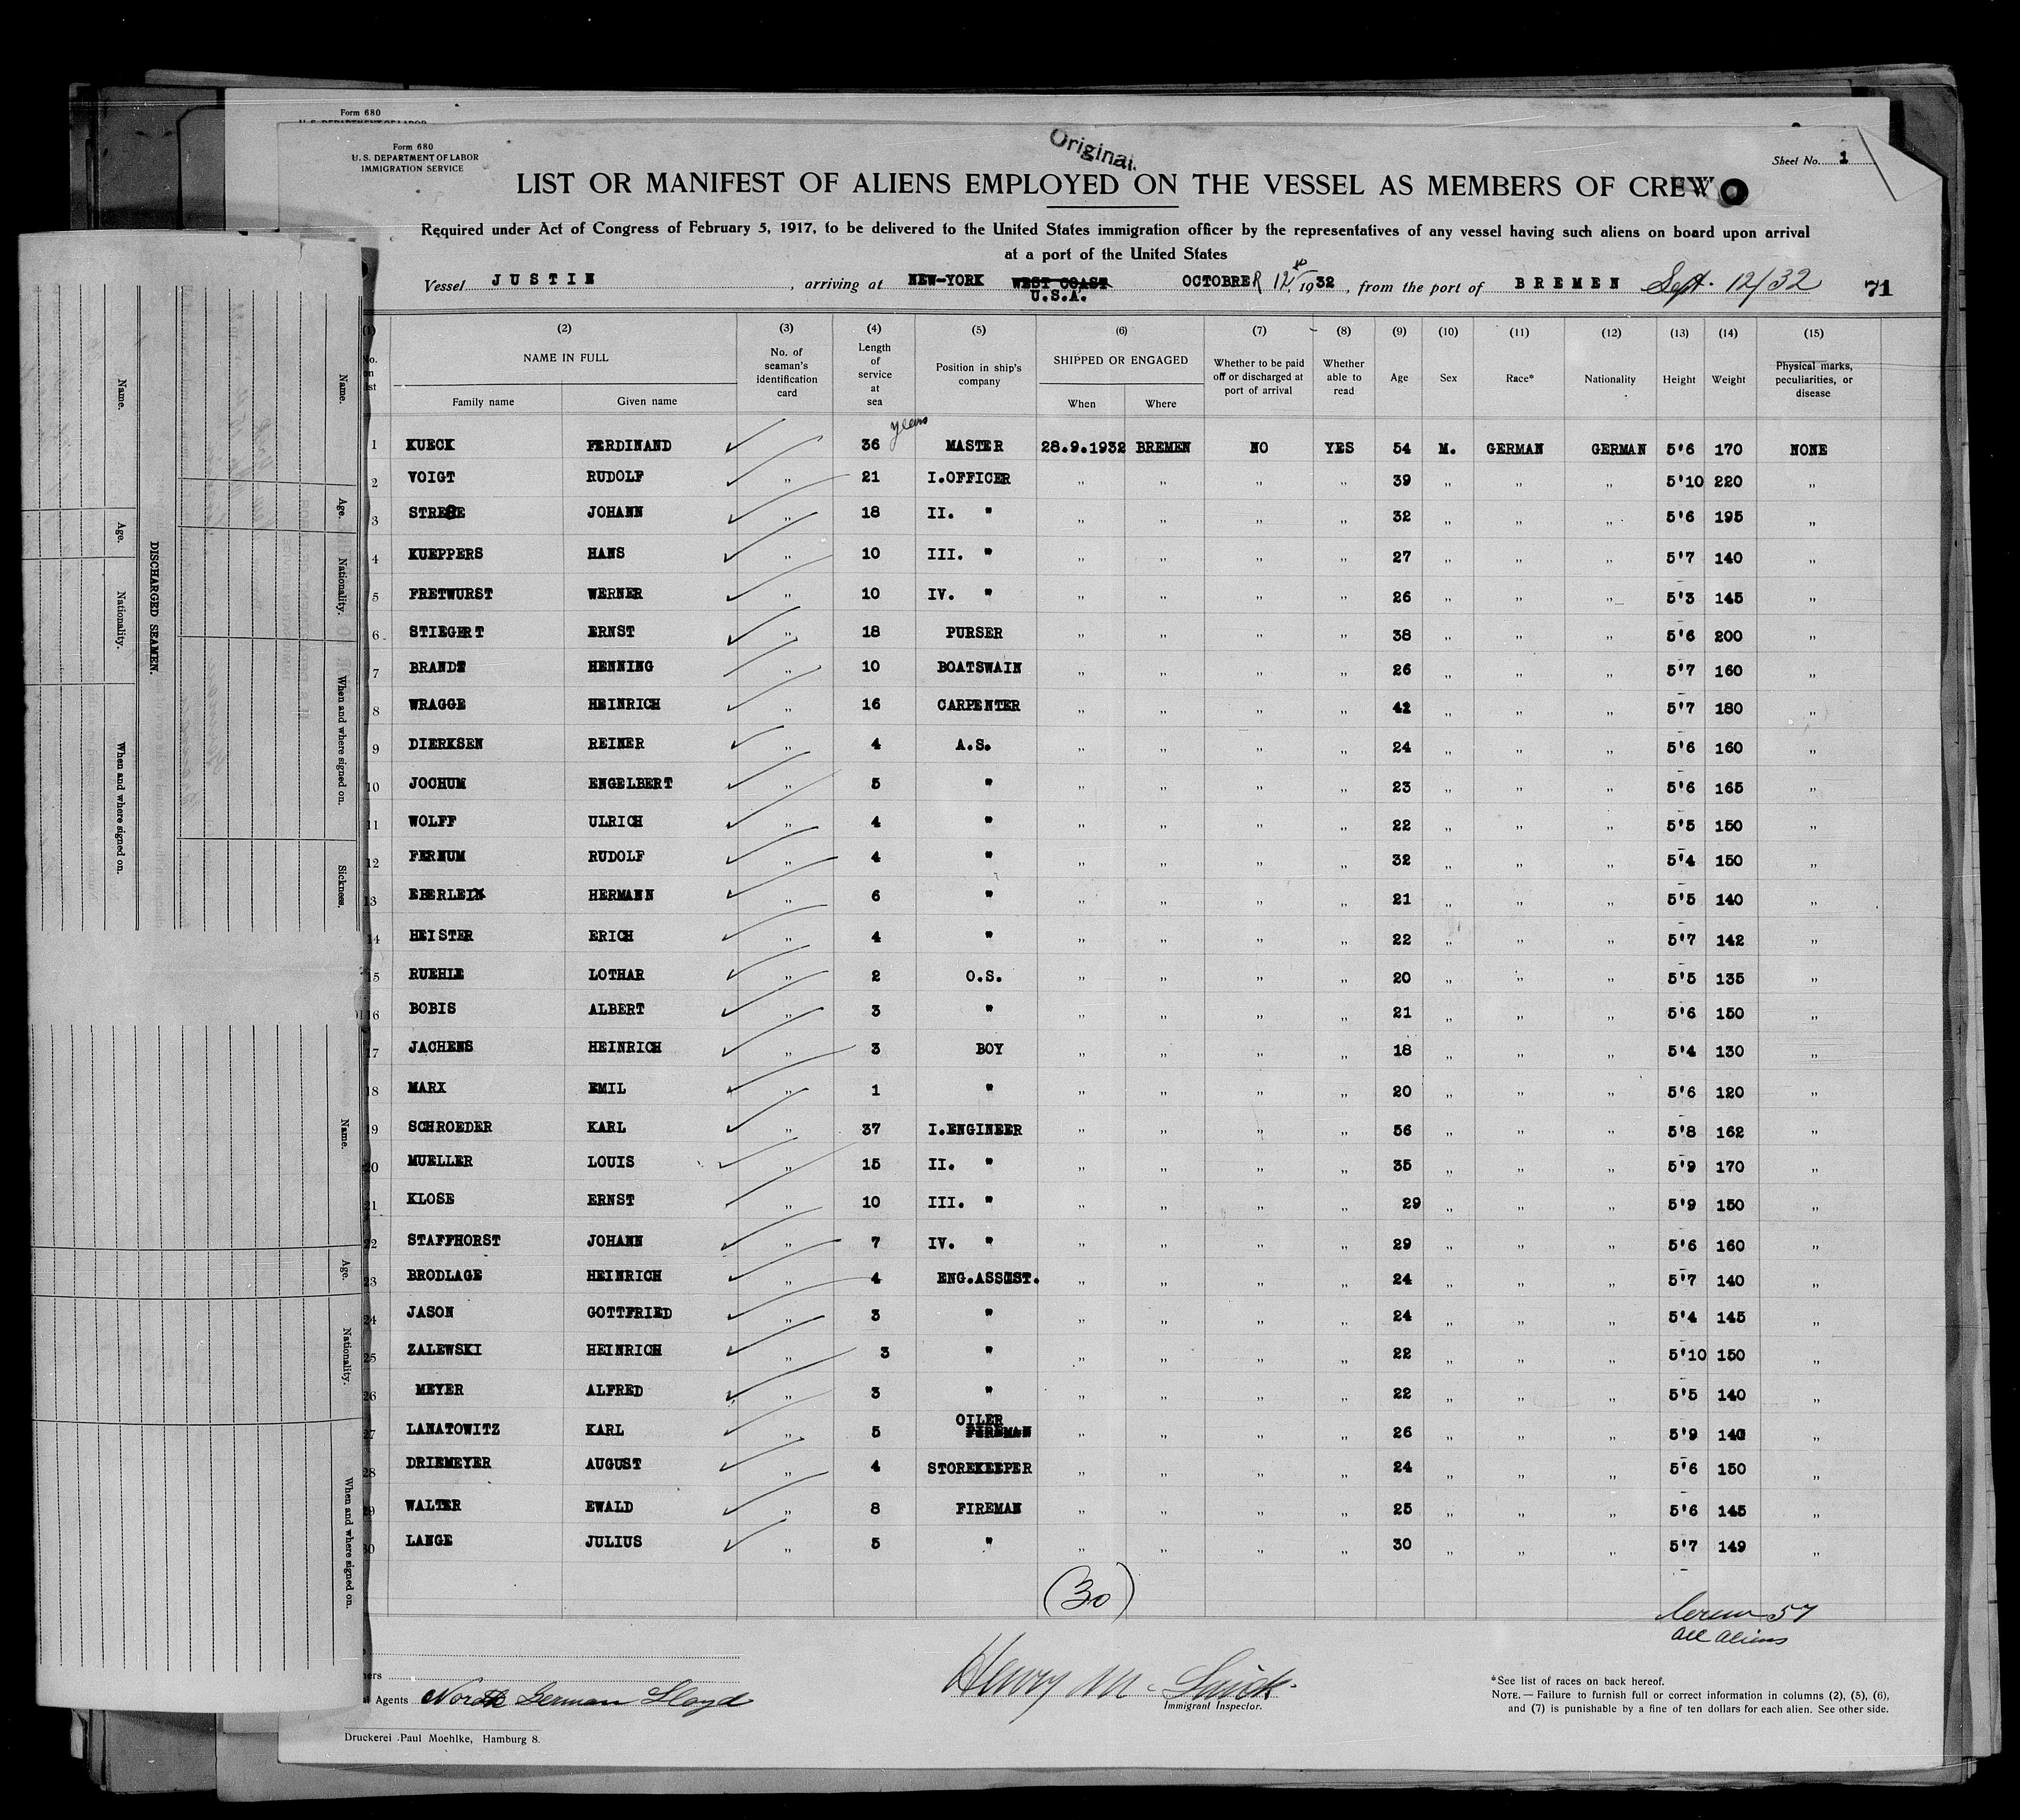 Form 680
U. S. DEPARTMENT OF LABOR
Form 680
U. S. DEPARTMENT OF LABOR
IMMIGRATION SERVICE
Original.
Sheet No. 1
LIST OR MANIFEST OF ALIENS EMPLOYED ON THE VESSEL AS MEMBERS OF CREW
Required under Act of Congress of February 5, 1917, to be delivered to the United States immigration officer by the representatives of any vessel having such aliens on board upon arrival
at a port of the United States
Vessel JUSTIN, arriving at NEW-YORK WEST COAST U.S.A. OCTOBER 12th 1932, from the port of BREMEN Sept. 12/32 71
(1) (2) (3) (4) (5) (6) (7) (8) (9) (10) (11) (12) (13) (14) (15)
NAME IN FULL No. of seaman's identification card Length of service at sea Position in ship's company SHIPPED OR ENGAGED Whether to be paid off or discharged at port of arrival Whether able to read Age Sex Race* Nationality Height Weight Physical marks, peculiarities, or disease
Family name Given name When Where
years
1 KUECK FERDINAND 36 MASTER 28.9.1932 BREMEN NO YES 54 M. GERMAN GERMAN 5'6 170 NONE
2 VOIGT RUDOLF " 21 I.OFFICER " " " " 39 " " " 5'10 220 "
3 JOHANN " 18 II. " " " " " 32 " " " 5'6 195 "
4 KUEPPERS HANS " 10 III. " " " " " 27 " " " 5'7 140 "
5 FRETWURST WERNER " 10 IV. " " " " " 26 " " " 5'3 145 "
6 STIEGERT ERNST " 18 PURSER " " " " 38 " " " 5'6 200 "
7 BRANDT HENNING " 10 BOATSWAIN " " " " 26 " " " 5'7 160 "
8 WRAGGE HEINRICH " 16 CARPENTER " " " " 42 " " " 5'7 180 "
9 DIERKSEN REINER " 4 A.S. " " " " 24 " " " 5'6 160 "
10 JOCHUM ENGELBERT " 5 " " " " " 23 " " " 5'6 165 "
11 WOLFF ULRICH " 4 " " " " " 22 " " " 5'5 150 "
12 FERNUM RUDOLF " 4 " " " " " 32 " " " 5'4 150 "
13 EBERLEIN HERMANN " 6 " " " " " 21 " " " 5'5 140 "
14 HEISTER ERICH " 4 " " " " " 22 " " " 5'7 142 "
15 RUEHLE LOTHAR " 2 O.S. " " " " 20 " " " 5'5 135 "
16 BOBIS ALBERT " 3 " " " " " 21 " " " 5'6 150 "
17 JACHENS HEINRICH " 3 BOY " " " " 18 " " " 5'4 130 "
18 MARX EMIL " 1 " " " " " 20 " " " 5'6 120 "
19 SCHROEDER KARL " 37 I.ENGINEER " " " " 56 " " " 5'8 162 "
20 MUELLER LOUIS " 15 II. " " " " " 35 " " " 5'9 170 "
21 KLOSE ERNST " 10 III. " " " " " 29 " " " 5'9 150 "
22 STAFFHORST JOHANN " 7 IV. " " " " " 29 " " " 5'6 160 "
23 BRODLAGE HEINRICH " 4 ENG.ASSIST. " " " " 24 " " " 5'7 140 "
24 JASON GOTTFRIED " 3 " " " " " 24 " " " 5'4 145 "
25 ZALEWSKI HEINRICH " 3 " " " " " 22 " " " 5'10 150 "
26 MEYER ALFRED " 3 " " " " " 22 " " " 5'5 140 "
27 LANATOWITZ KARL " 5 OILER FIREMAN " " " " 26 " " " 5'9 140 "
28 DRIEMEYER AUGUST " 4 STOREKEEPER " " " " 24 " " " 5'6 150 "
29 WALTER EWALD " 8 FIREMAN " " " " 25 " " " 5'6 145 "
30 LANGE JULIUS " 5 " " " " " 30 " " " 5'7 149 "
(30)
57
all aliens
Agents North German Lloyd
Henry
Immigrant Inspector.
*See list of races on back hereof.
NOTE.—Failure to furnish full or correct information in columns (2), (5), (6),
and (7) is punishable by a fine of ten dollars for each alien. See other side.
Druckerei Paul Moehlke, Hamburg 8.
DISCHARGED SEAMEN.
Name. Age. Nationality. When and where signed on.
Name. Age. Nationality. When and where signed on. Sickness.
Name. Age. Nationality. When and where signed on.